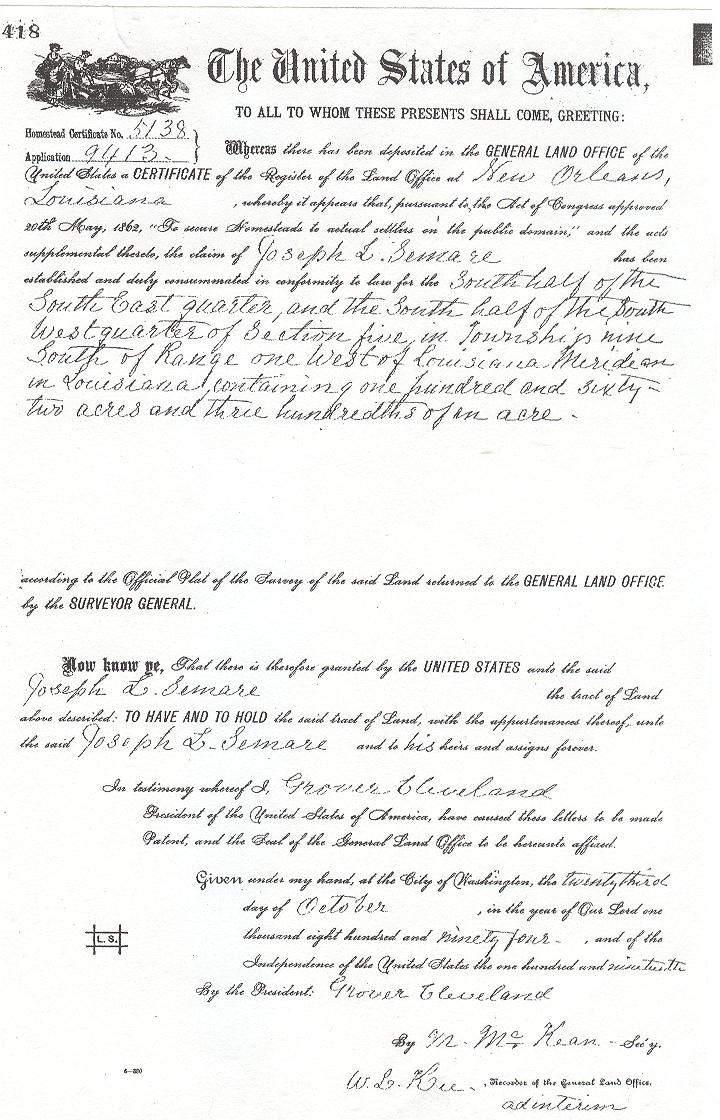 418
The United States of America,
TO ALL TO WHOM THESE PRESENTS SHALL COME, GREETING:
Homestead Certificate No. 5138
Application 9413
Whereas there has been deposited in the GENERAL LAND OFFICE of the
United States a CERTIFICATE of the Register of the Land Office at New Orleans,
Louisiana , whereby it appears that, pursuant to the Act of Congress approved
20th May, 1862, "To secure Homesteads to actual settlers on the public domain," and the acts
supplemental thereto, the claim of Joseph L. Semare has been
established and duly consummated in conformity to law for the South half of the
South East quarter, and the South half of the South
West quarter of Section five in Township nine
South of Range one West of Louisiana Meridian
in Louisiana, containing one hundred and sixty-
two acres and three hundredths of an acre -
according to the Official Plat of the Survey of the said Land returned to the GENERAL LAND OFFICE
by the SURVEYOR GENERAL.
Now know ye, That there is therefore granted by the UNITED STATES unto the said
Joseph L. Semare the tract of Land
above described: TO HAVE AND TO HOLD the said tract of Land, with the appurtenances thereof, unto
the said Joseph L. Semare and to his heirs and assigns forever.
In testimony whereof I, Grover Cleveland
President of the United States of America, have caused these letters to be made
Patent, and the Seal of the General Land Office to be hereunto affixed.
Given under my hand, at the City of Washington, the twenty third
day of October , in the year of Our Lord one
thousand eight hundred and ninety four - , and of the
Independence of the United States the one hundred and nineteenth
L. S.
By the President: Grover Cleveland
By M. McKean - Sec'y.
6-390
W. L. , Recorder of the General Land Office.
ad interim